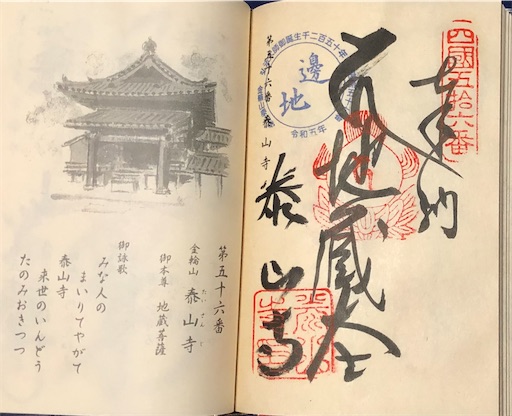 四國五拾六番
奉納
地蔵大士
弘法大師御誕生千二百五十年
邊地
令和五年
第五十六番 泰山寺
泰山寺
第五十六番
金輪山 泰山寺
たいさんじ
御本尊 地蔵菩薩
御詠歌
みな人の
まいりてやがて
泰山寺
来世のいんどう
たのみおきつつ